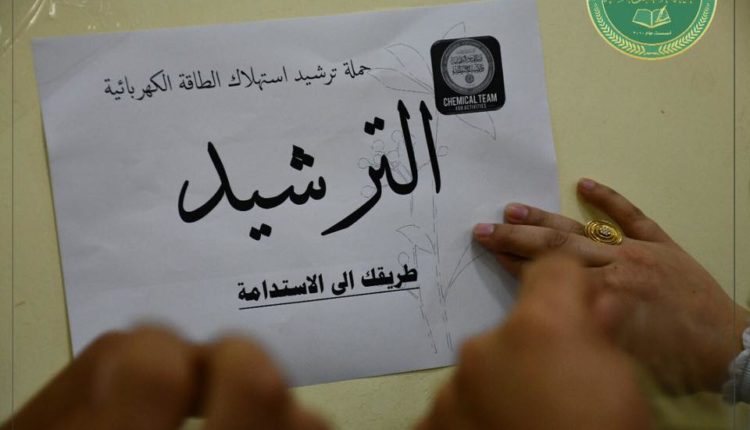 حملة ترشيد استهلاك الطاقة الكهربائية
CHEMICAL TEAM
FOR ACTIVITIES
الترشيد
طريقك الى الاستدامة